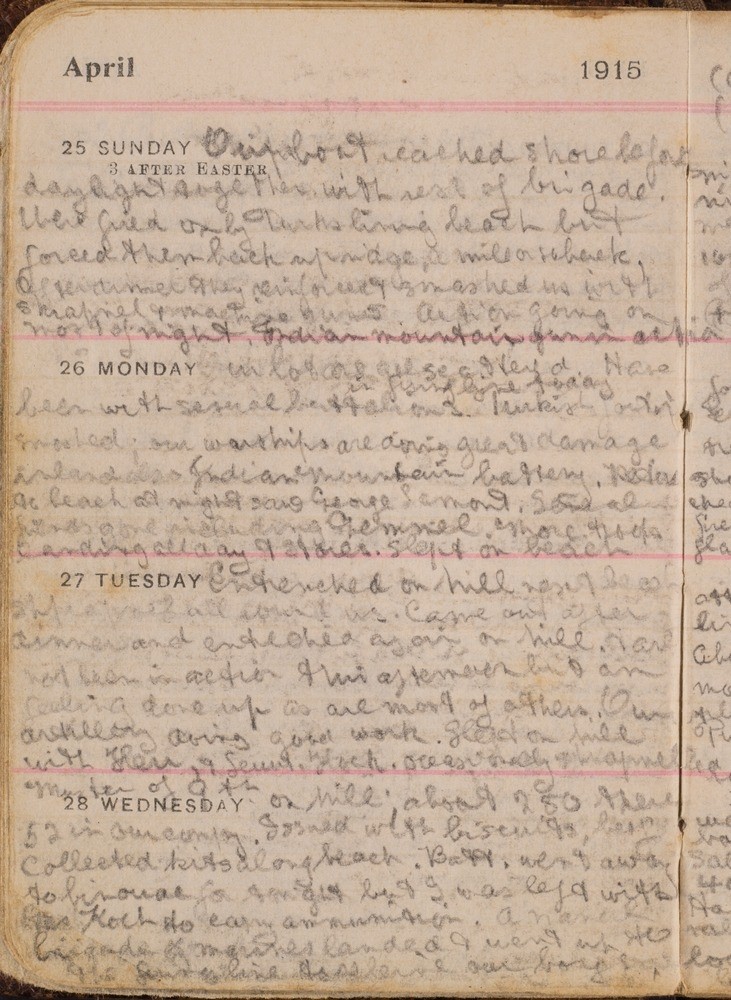 April 1915
25 SUNDAY Our boat reached shore before
3 AFTER EASTER
daylight together with rest of brigade.
Were fired on by Turks lining beach but
forced them back up ridge, a mile or so back.
After dinner they reinforced & smashed us with
shrapnel & machine guns. Action going on
most of night. Indian mountain guns in action
26 MONDAY Our lot are all scattered. Have
in firing line today
been with several battalions. Turkish
smashed; our warships are doing great damage
inland also Indian Mountain battery.
to beach at night saw George Lemont.
gone including more troops
Landing all day & stores. Slept on beach
27 TUESDAY Entrenched on hill next beach
shrapnel all round us. Came out after
dinner and entrenched again on hill. Have
not been in action this afternoon but am
feeling done up as are most of others. Our
artillery doing good work. Slept on hill
with Herr & Koch. occasionally shrapnel
Muster of 9th
28 WEDNESDAY on hill; about 280 there
52 in our compy. Issued with biscuits,
Collected kits along beach. Batt. went away
to bivouac for tonight but I was left with
Koch to carry ammunition. A naval
brigade & marines landed & went up to
the firing line to relieve our boys.